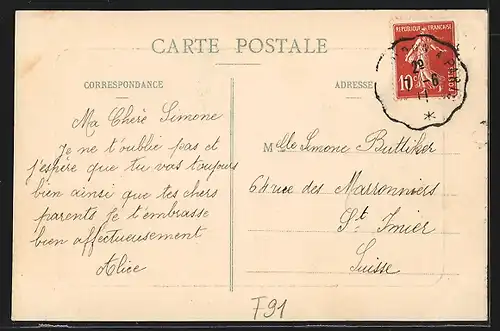 CARTE POSTALE
CORRESPONDANCE
ADRESSE
REPUBLIQUE FRANÇAISE
10c
POSTES
Ma Chère Simone
Je ne t'oublie pas et
j'espère que tu vas toujours
bien ainsi que tes chers
parents Je t'embrasse
bien affectueusement
Alice
Mlle Simone Buttiker
64 rue des Marronniers
St. Imier
Suisse
F91